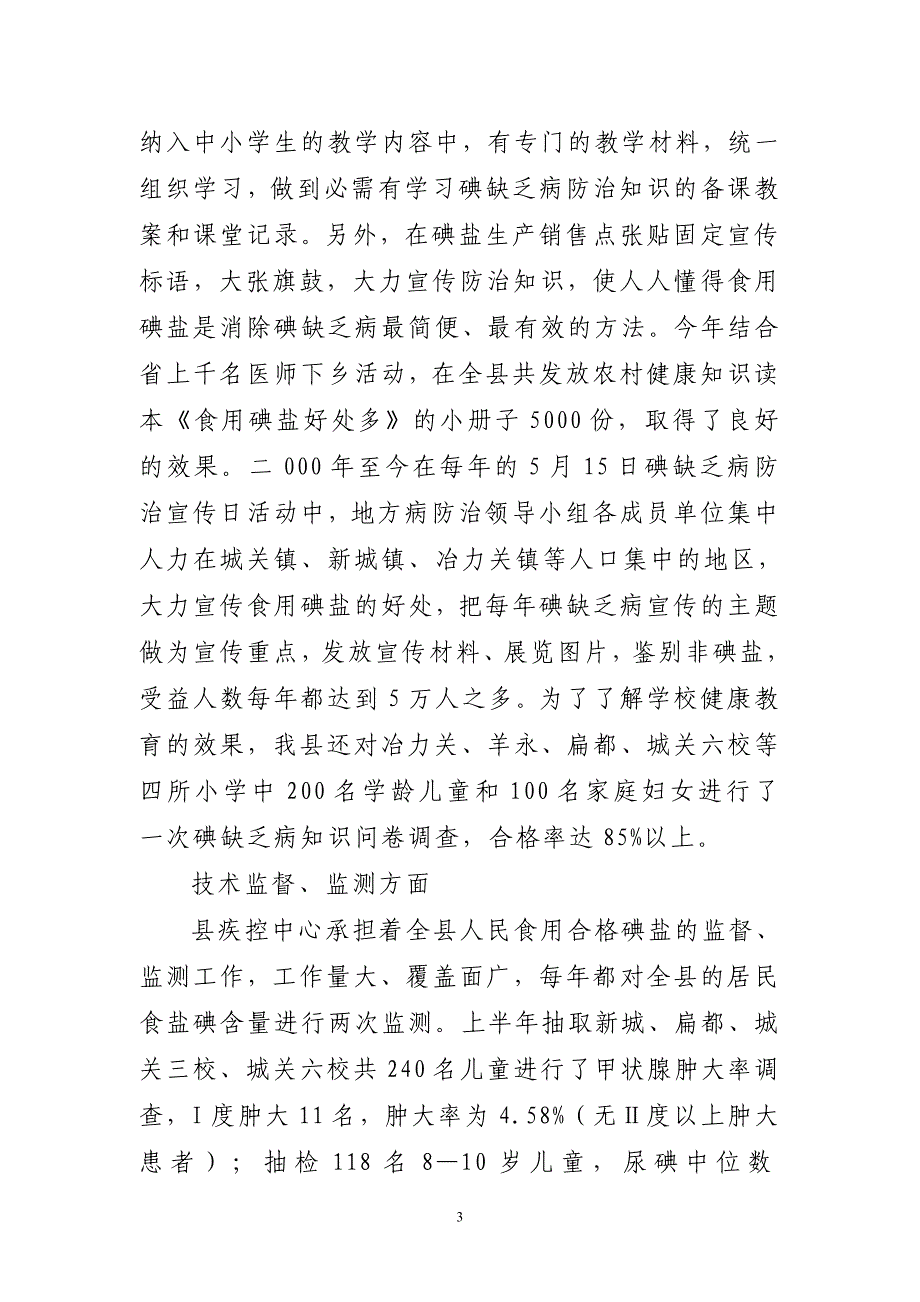 纳入中小学生的教学内容中，有专门的教学材料，统一
组织学习，做到必需有学习碘缺乏病防治知识的备课教
案和课堂记录。另外，在碘盐生产销售点张贴固定宣传
标语，大张旗鼓，大力宣传防治知识，使人人懂得食用
碘盐是消除碘缺乏病最简便、最有效的方法。今年结合
省上千名医师下乡活动，在全县共发放农村健康知识读
本《食用碘盐好处多》的小册子 5000 份，取得了良好
的效果。二 000 年至今在每年的 5 月 15 日碘缺乏病防
治宣传日活动中，地方病防治领导小组各成员单位集中
人力在城关镇、新城镇、冶力关镇等人口集中的地区，
大力宣传食用碘盐的好处，把每年碘缺乏病宣传的主题
做为宣传重点，发放宣传材料、展览图片，鉴别非碘盐，
受益人数每年都达到 5 万人之多。为了了解学校健康教
育的效果，我县还对冶力关、羊永、扁都、城关六校等
四所小学中 200 名学龄儿童和 100 名家庭妇女进行了
一次碘缺乏病知识问卷调查，合格率达 85%以上。
技术监督、监测方面
县疾控中心承担着全县人民食用合格碘盐的监督、
监测工作，工作量大、覆盖面广，每年都对全县的居民
食盐碘含量进行两次监测。上半年抽取新城、扁都、城
关三校、城关六校共 240 名儿童进行了甲状腺肿大率调
查，Ⅰ度肿大 11 名，肿大率为 4.58%（无Ⅱ度以上肿大
患者）；抽检 118 名 8—10 岁儿童，尿碘中位数
3